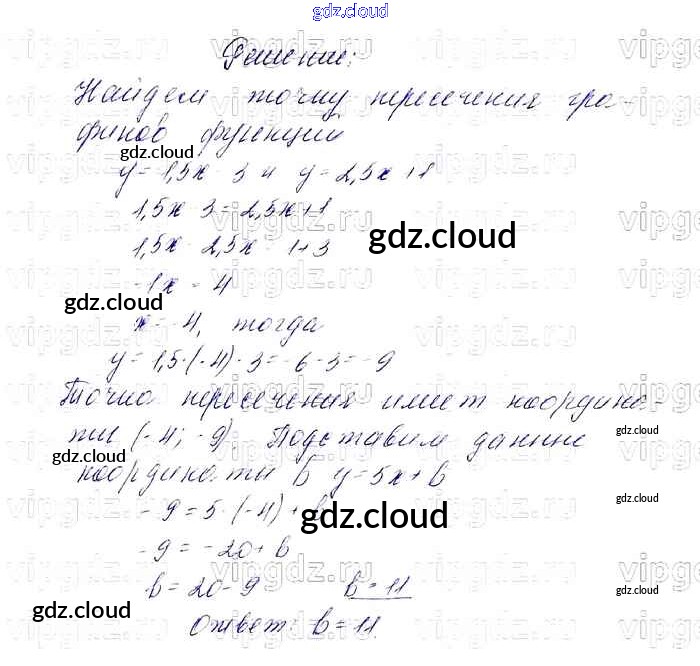 gdz.cloud
Решение:
Найдем точку пересечения гра-
фиков функций
gdz.cloud
y = 1,5x - 3 и y = 2,5x + 1
1,5x - 3 = 2,5x + 1
gdz.cloud
1,5x - 2,5x = 1 + 3
-1x = 4
gdz.cloud
x = -4, тогда
y = 1,5·(-4) - 3 = -6 - 3 = -9
Точка пересечения имеет координа-
gdz.cloud
ты (-4; -9) Подставим данные
gdz.cloud
координаты в y = 5x + b
gdz.cloud
-9 = 5·(-4) + b
gdz.cloud
-9 = -20 + b
b = 20 - 9 b = 11
gdz.cloud
gdz.cloud
Ответ: b = 11.